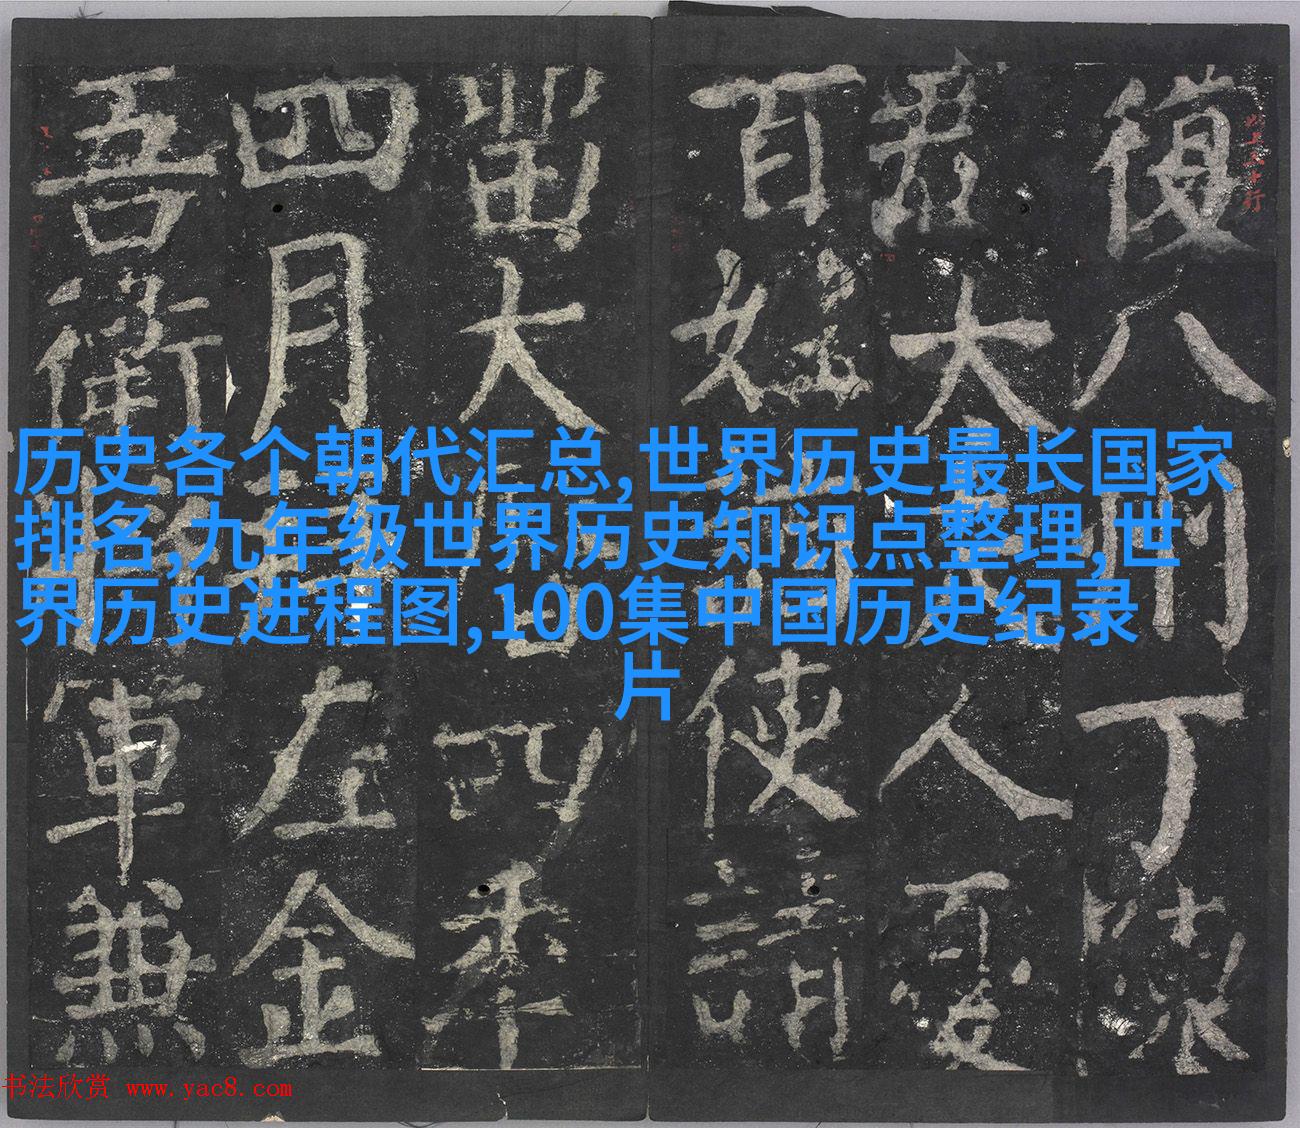 復八門丁
大人
百姓使請
留大四年
四月左金
吾衛將軍兼
历史各个朝代汇总,世界历史最长国家
排名,九年级世界历史知识点整理,世
界历史进程图,100集中国历史纪录
片
书法欣赏 www.yac8.com